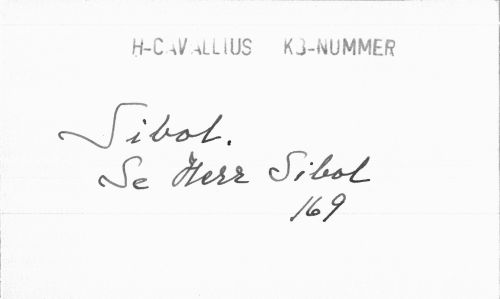 H-CAVALLIUS KB-NUMMER
Sibol.
Se Herr Sibol
169